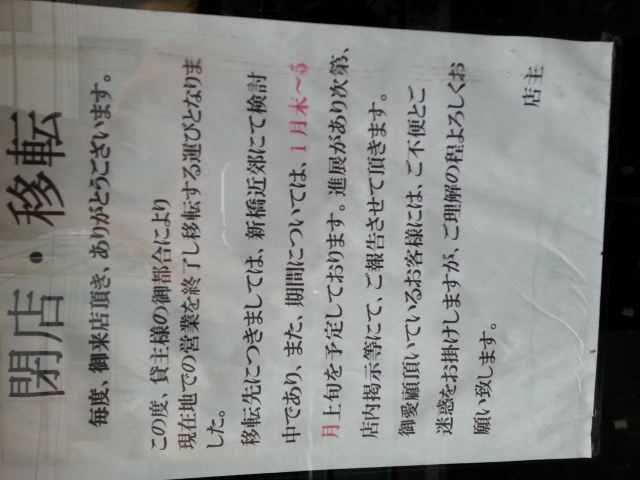 閉店・移転
毎度、御来店頂き、ありがとうございます。
この度、貸主様の御都合により
現在地での営業を終了し移転する運びとなりま
した。
移転先につきましては、新橋近郊にて検討
中であり、また、期間については、1月末～5
月上旬を予定しております。進展があり次第、
店内掲示等にて、ご報告させて頂きます。
御愛顧頂いているお客様には、ご不便とご
迷惑をお掛けしますが、ご理解の程よろしくお
願い致します。
店主